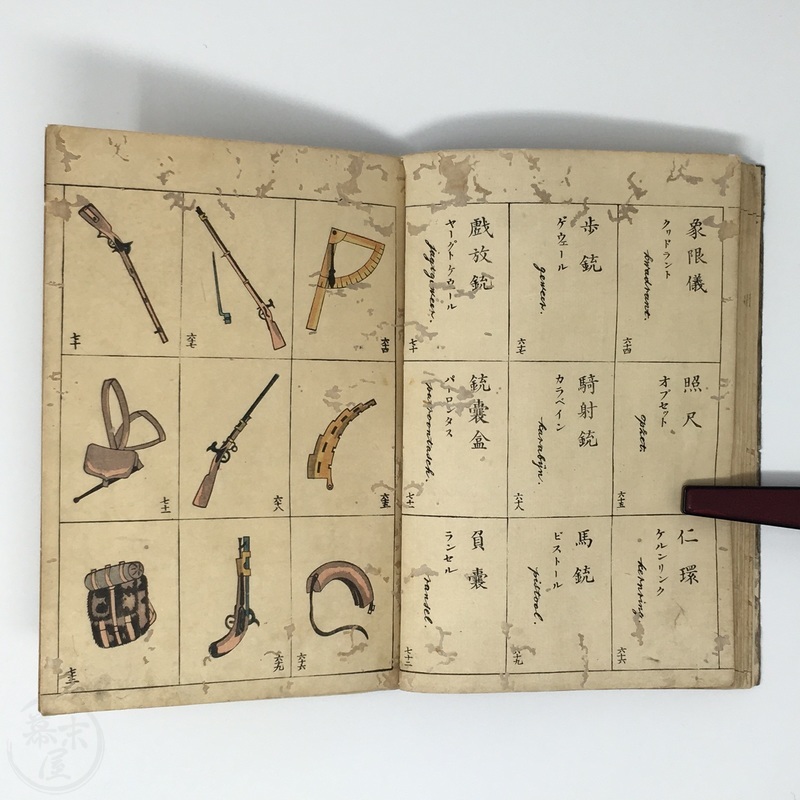 象限儀
クワドラント
kwadrant.
六十四
照尺
オプセット
opzet.
六十五
仁環
ケルンリンク
kernring
六十六
歩銃
ゲウェール
geweer.
六十七
騎射銃
カラベイン
karabÿn.
六十八
馬銃
ピストール
pistool.
六十九
戯放銃
ヤーグトゲウール
jagtgeweer.
七十
銃嚢盒
パーロンタス
patroontasch.
七十一
負嚢
ランセル
ransel.
七十二
六十四
六十五
六十六
六十七
六十八
六十九
七十
七十一
七十二
幕末屋